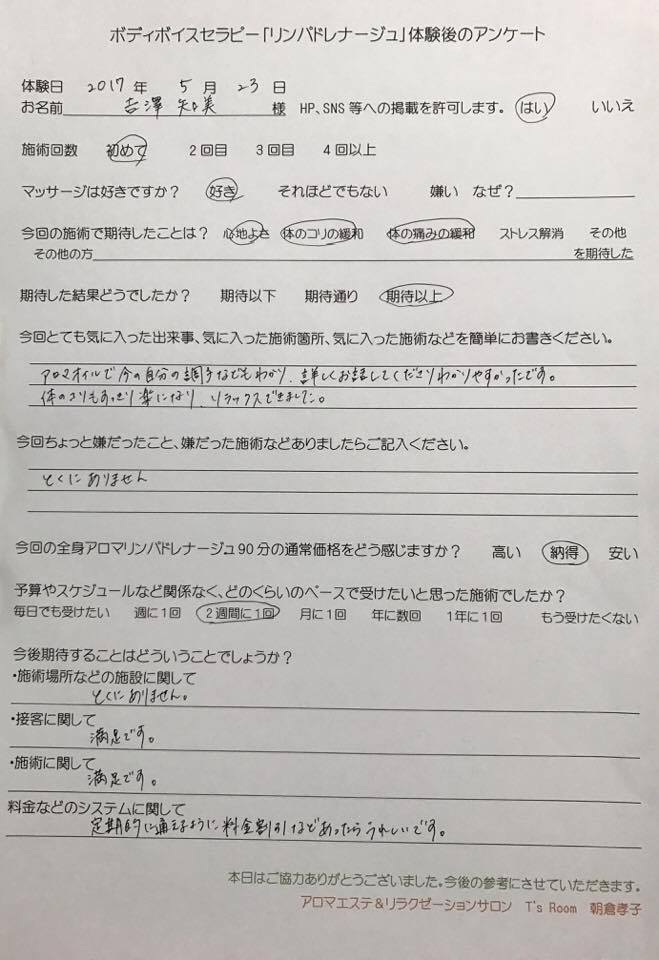 ボディボイスセラピー「リンパドレナージュ」体験後のアンケート
体験日 2017 年 5 月 23 日
お名前 吉澤 知美 様 HP、SNS 等への掲載を許可します。 はい いいえ
施術回数 初めて 2回目 3回目 4回以上
マッサージは好きですか? 好き それほどでもない 嫌い なぜ?
今回の施術で期待したことは? 心地よさ 体のコリの緩和 体の痛みの緩和 ストレス解消 その他
その他の方 を期待した
期待した結果どうでしたか? 期待以下 期待通り 期待以上
今回とても気に入った出来事、気に入った施術箇所、気に入った施術などを簡単にお書きください。
アロマオイルで今の自分の調子などもわかり、詳しくお話してくださりわかりやすかったです。
体のコリもすっきり楽になり、リラックスできました。
今回ちょっと嫌だったこと、嫌だった施術などありましたらご記入ください。
とくにありません
今回の全身アロマリンパドレナージュ90分の通常価格をどう感じますか? 高い 納得 安い
予算やスケジュールなど関係なく、どのくらいのペースで受けたいと思った施術でしたか?
毎日でも受けたい 週に1回 2週間に1回 月に1回 年に数回 1年に1回 もう受けたくない
今後期待することはどういうことでしょうか?
・施術場所などの施設に関して
とくにありません。
・接客に関して
満足です。
・施術に関して
満足です。
料金などのシステムに関して
定期的に通えるように料金割引などあったらうれしいです。
本日はご協力ありがとうございました。今後の参考にさせていただきます。
アロマエステ&リラクゼーションサロン T's Room 朝倉孝子